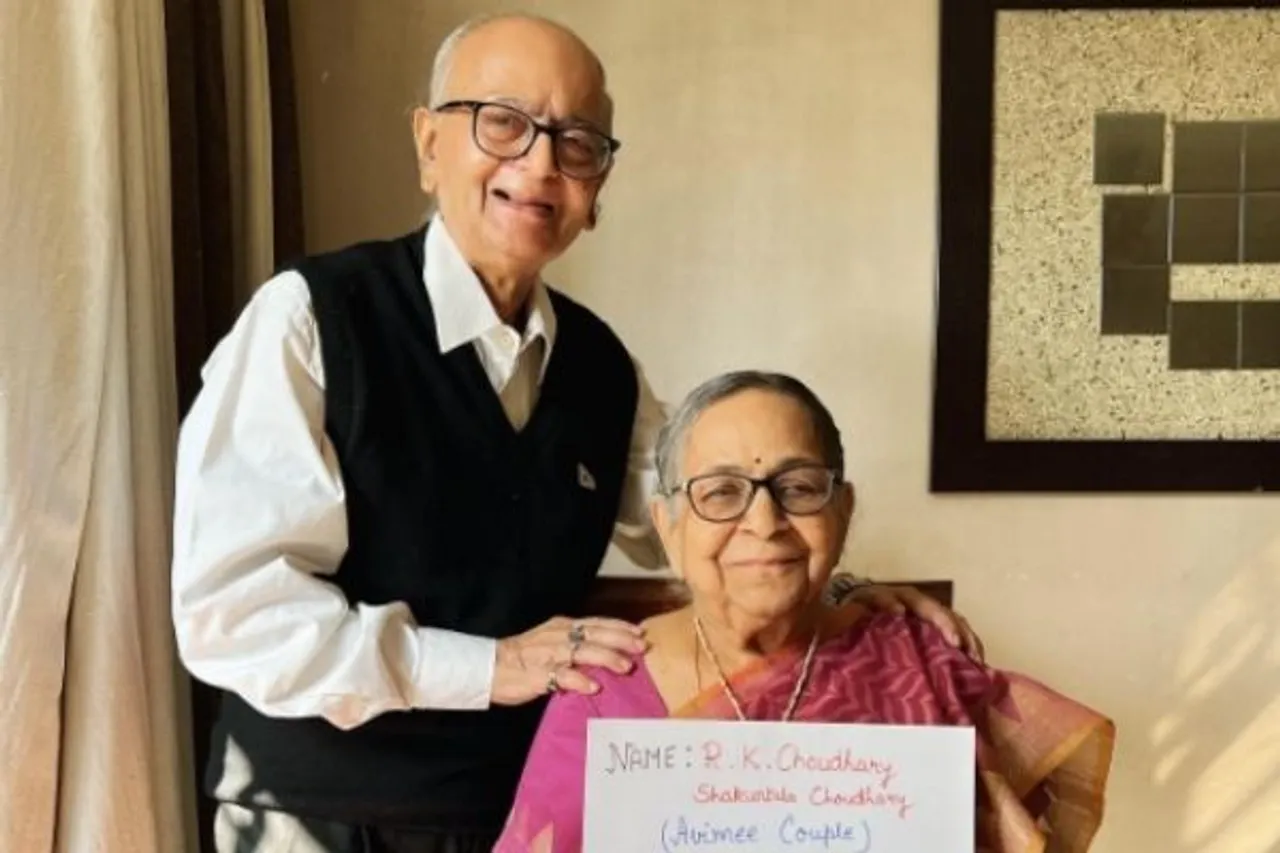 NAME: R.K. Choudhary
Shakuntala Choudhary
(Avimee Couple)